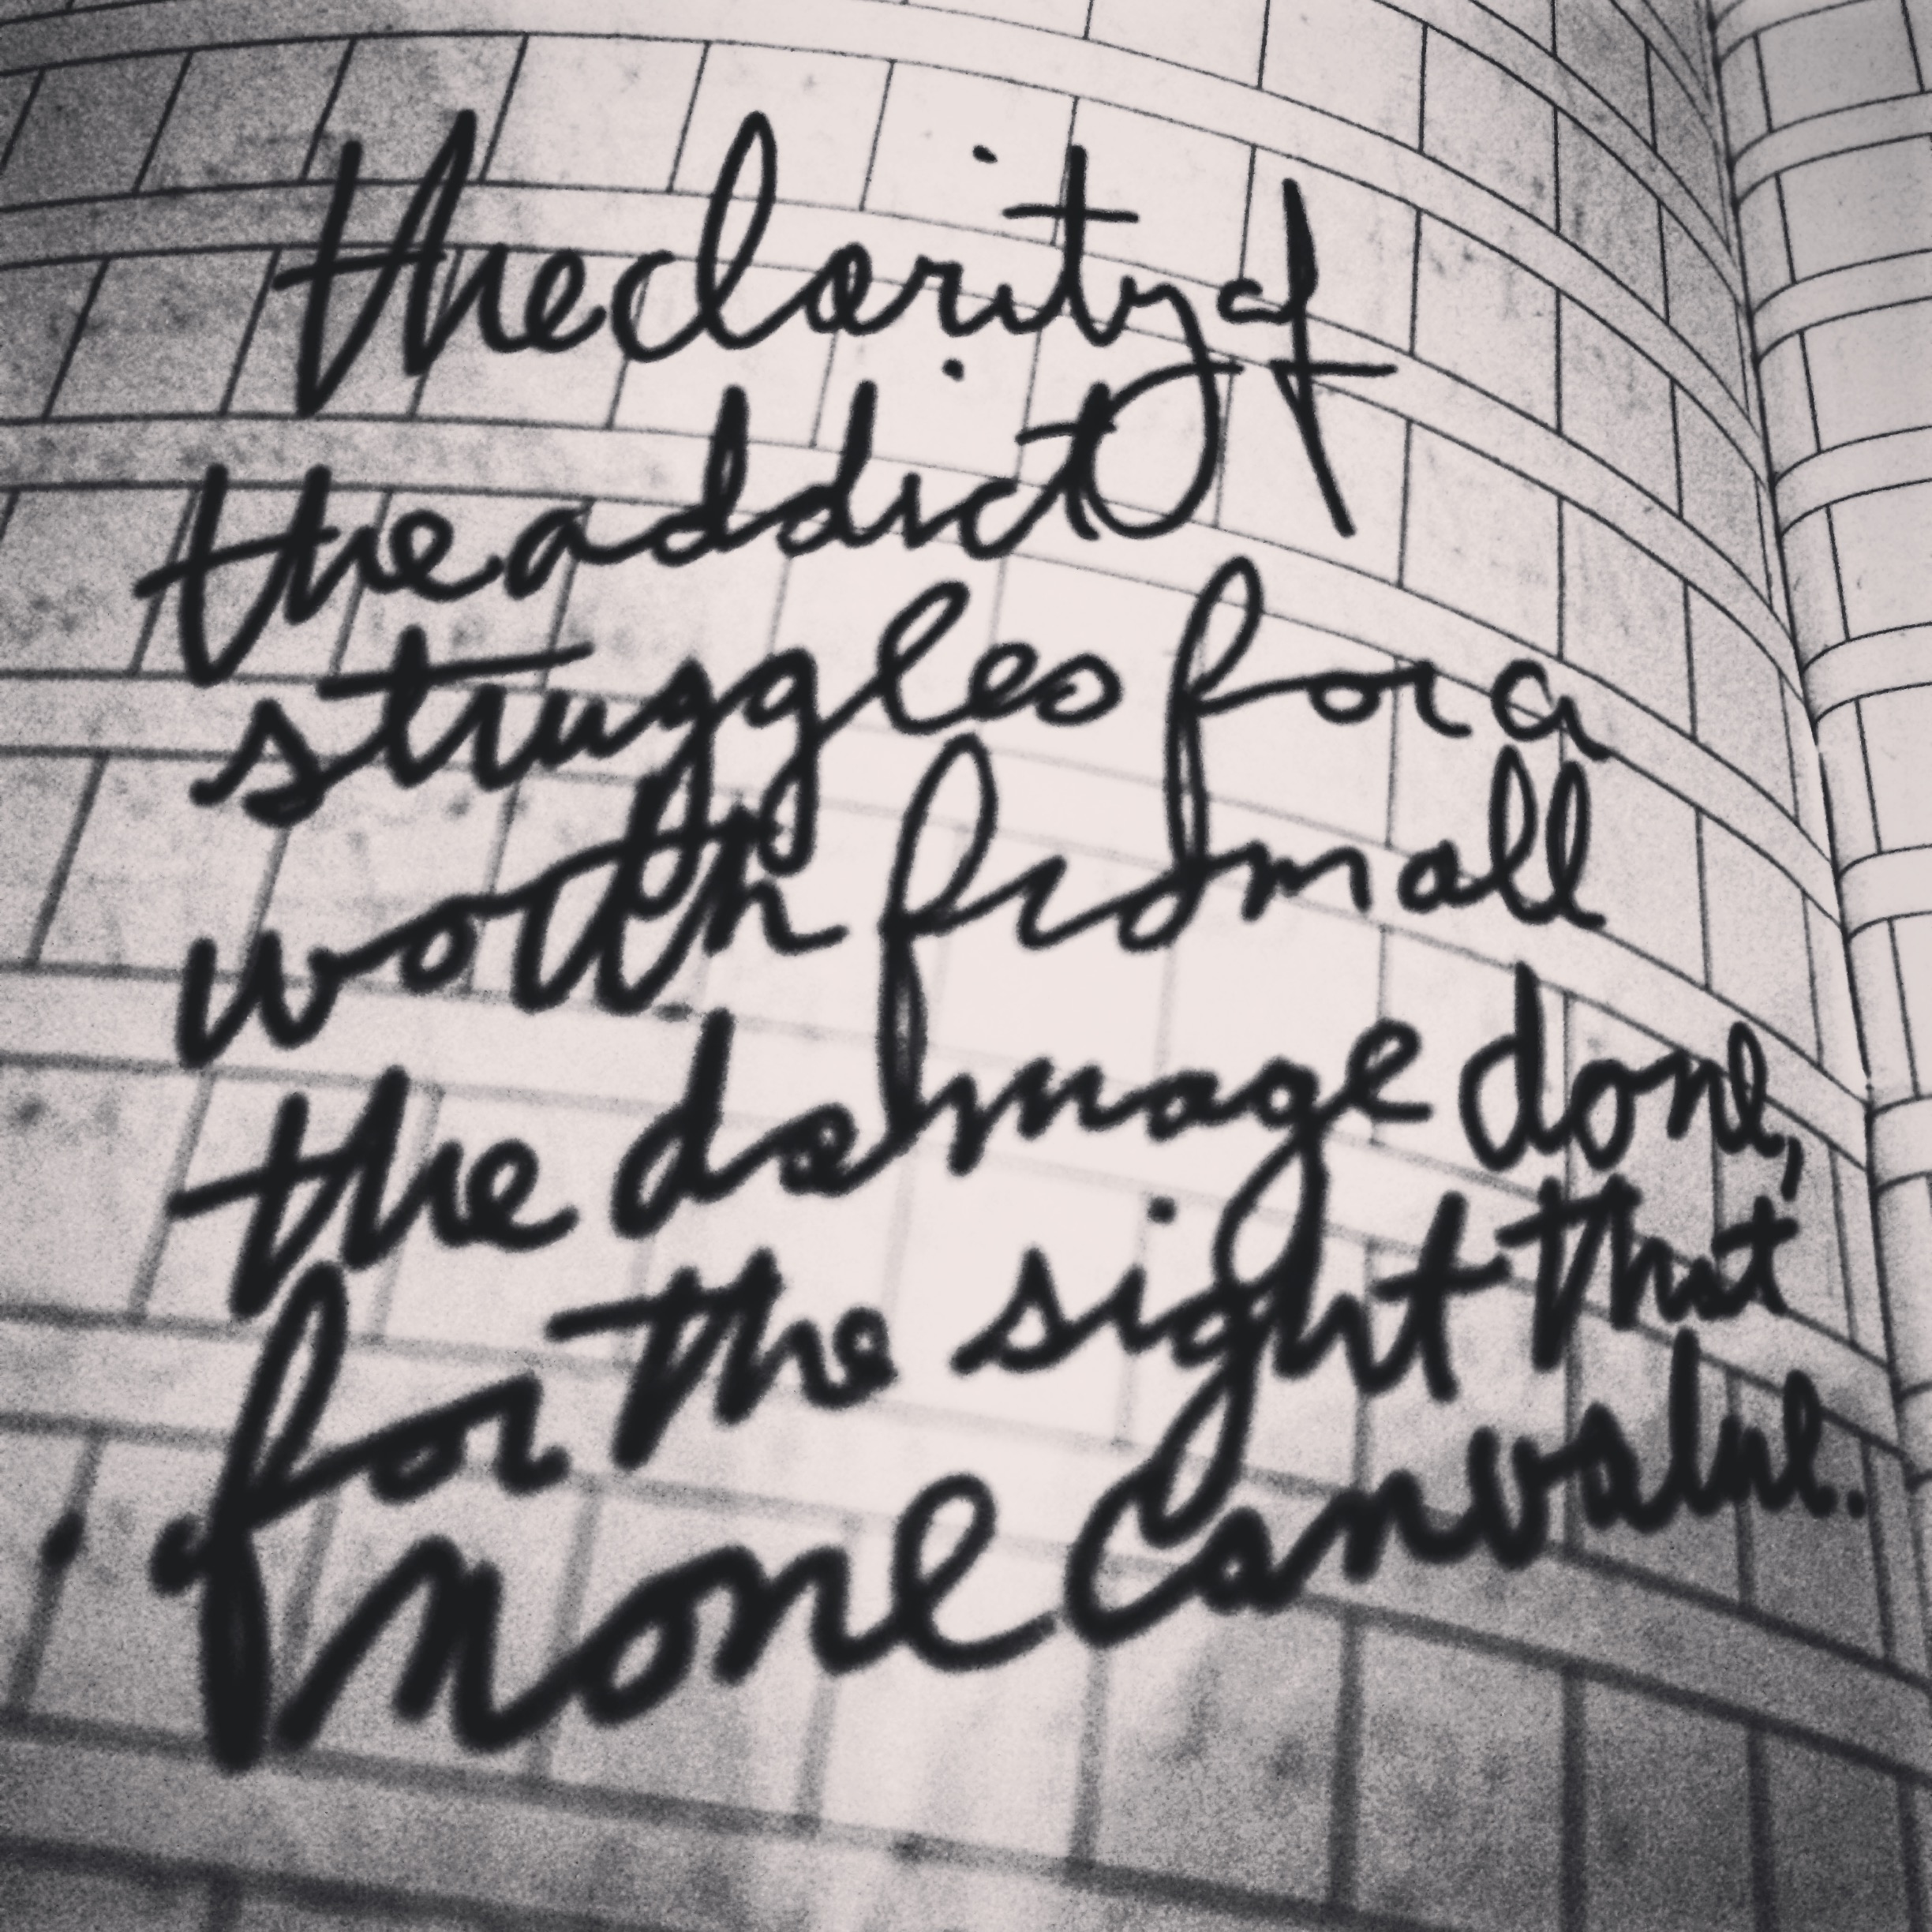 the clarity of
the addict
struggles for a
worth from all
the damage done,
for the sight that
none can value.